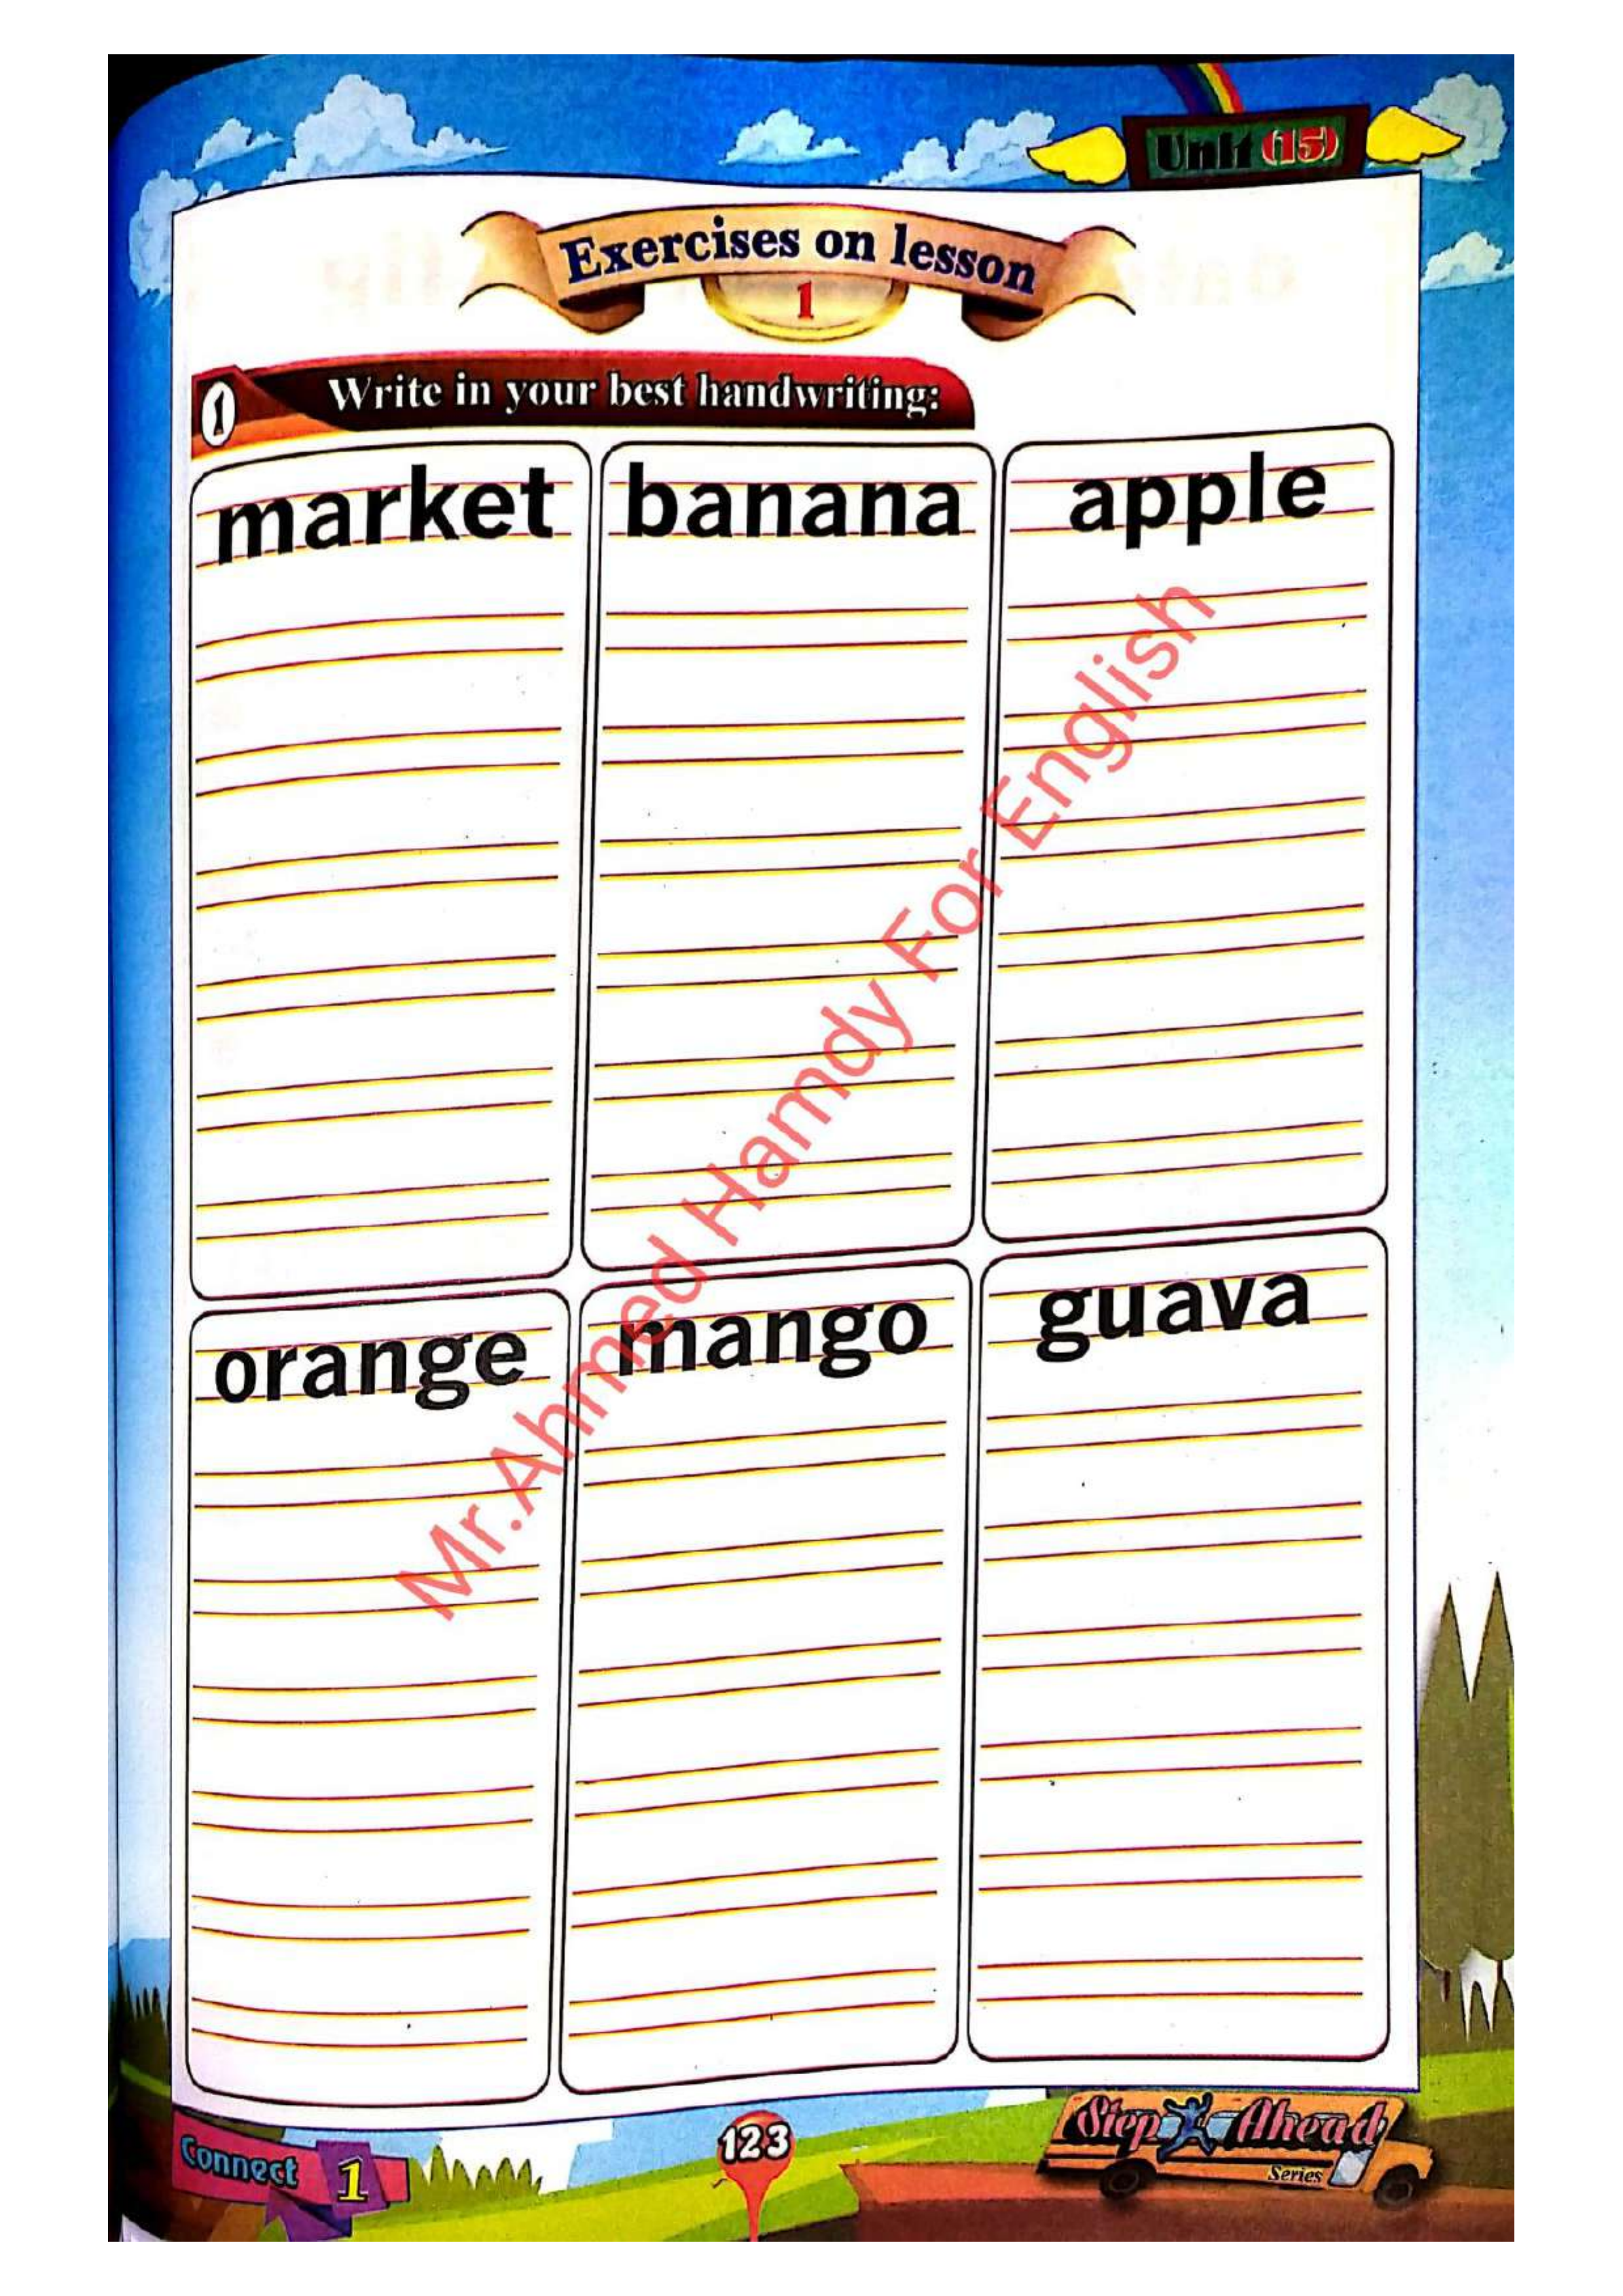 Unit (15)
Exercises on lesson
1
1 Write in your best handwriting:
market banana apple
orange mango guava
Mr.Ahmed Hamdy For English
Connect 1
123
Step Ahead
Series